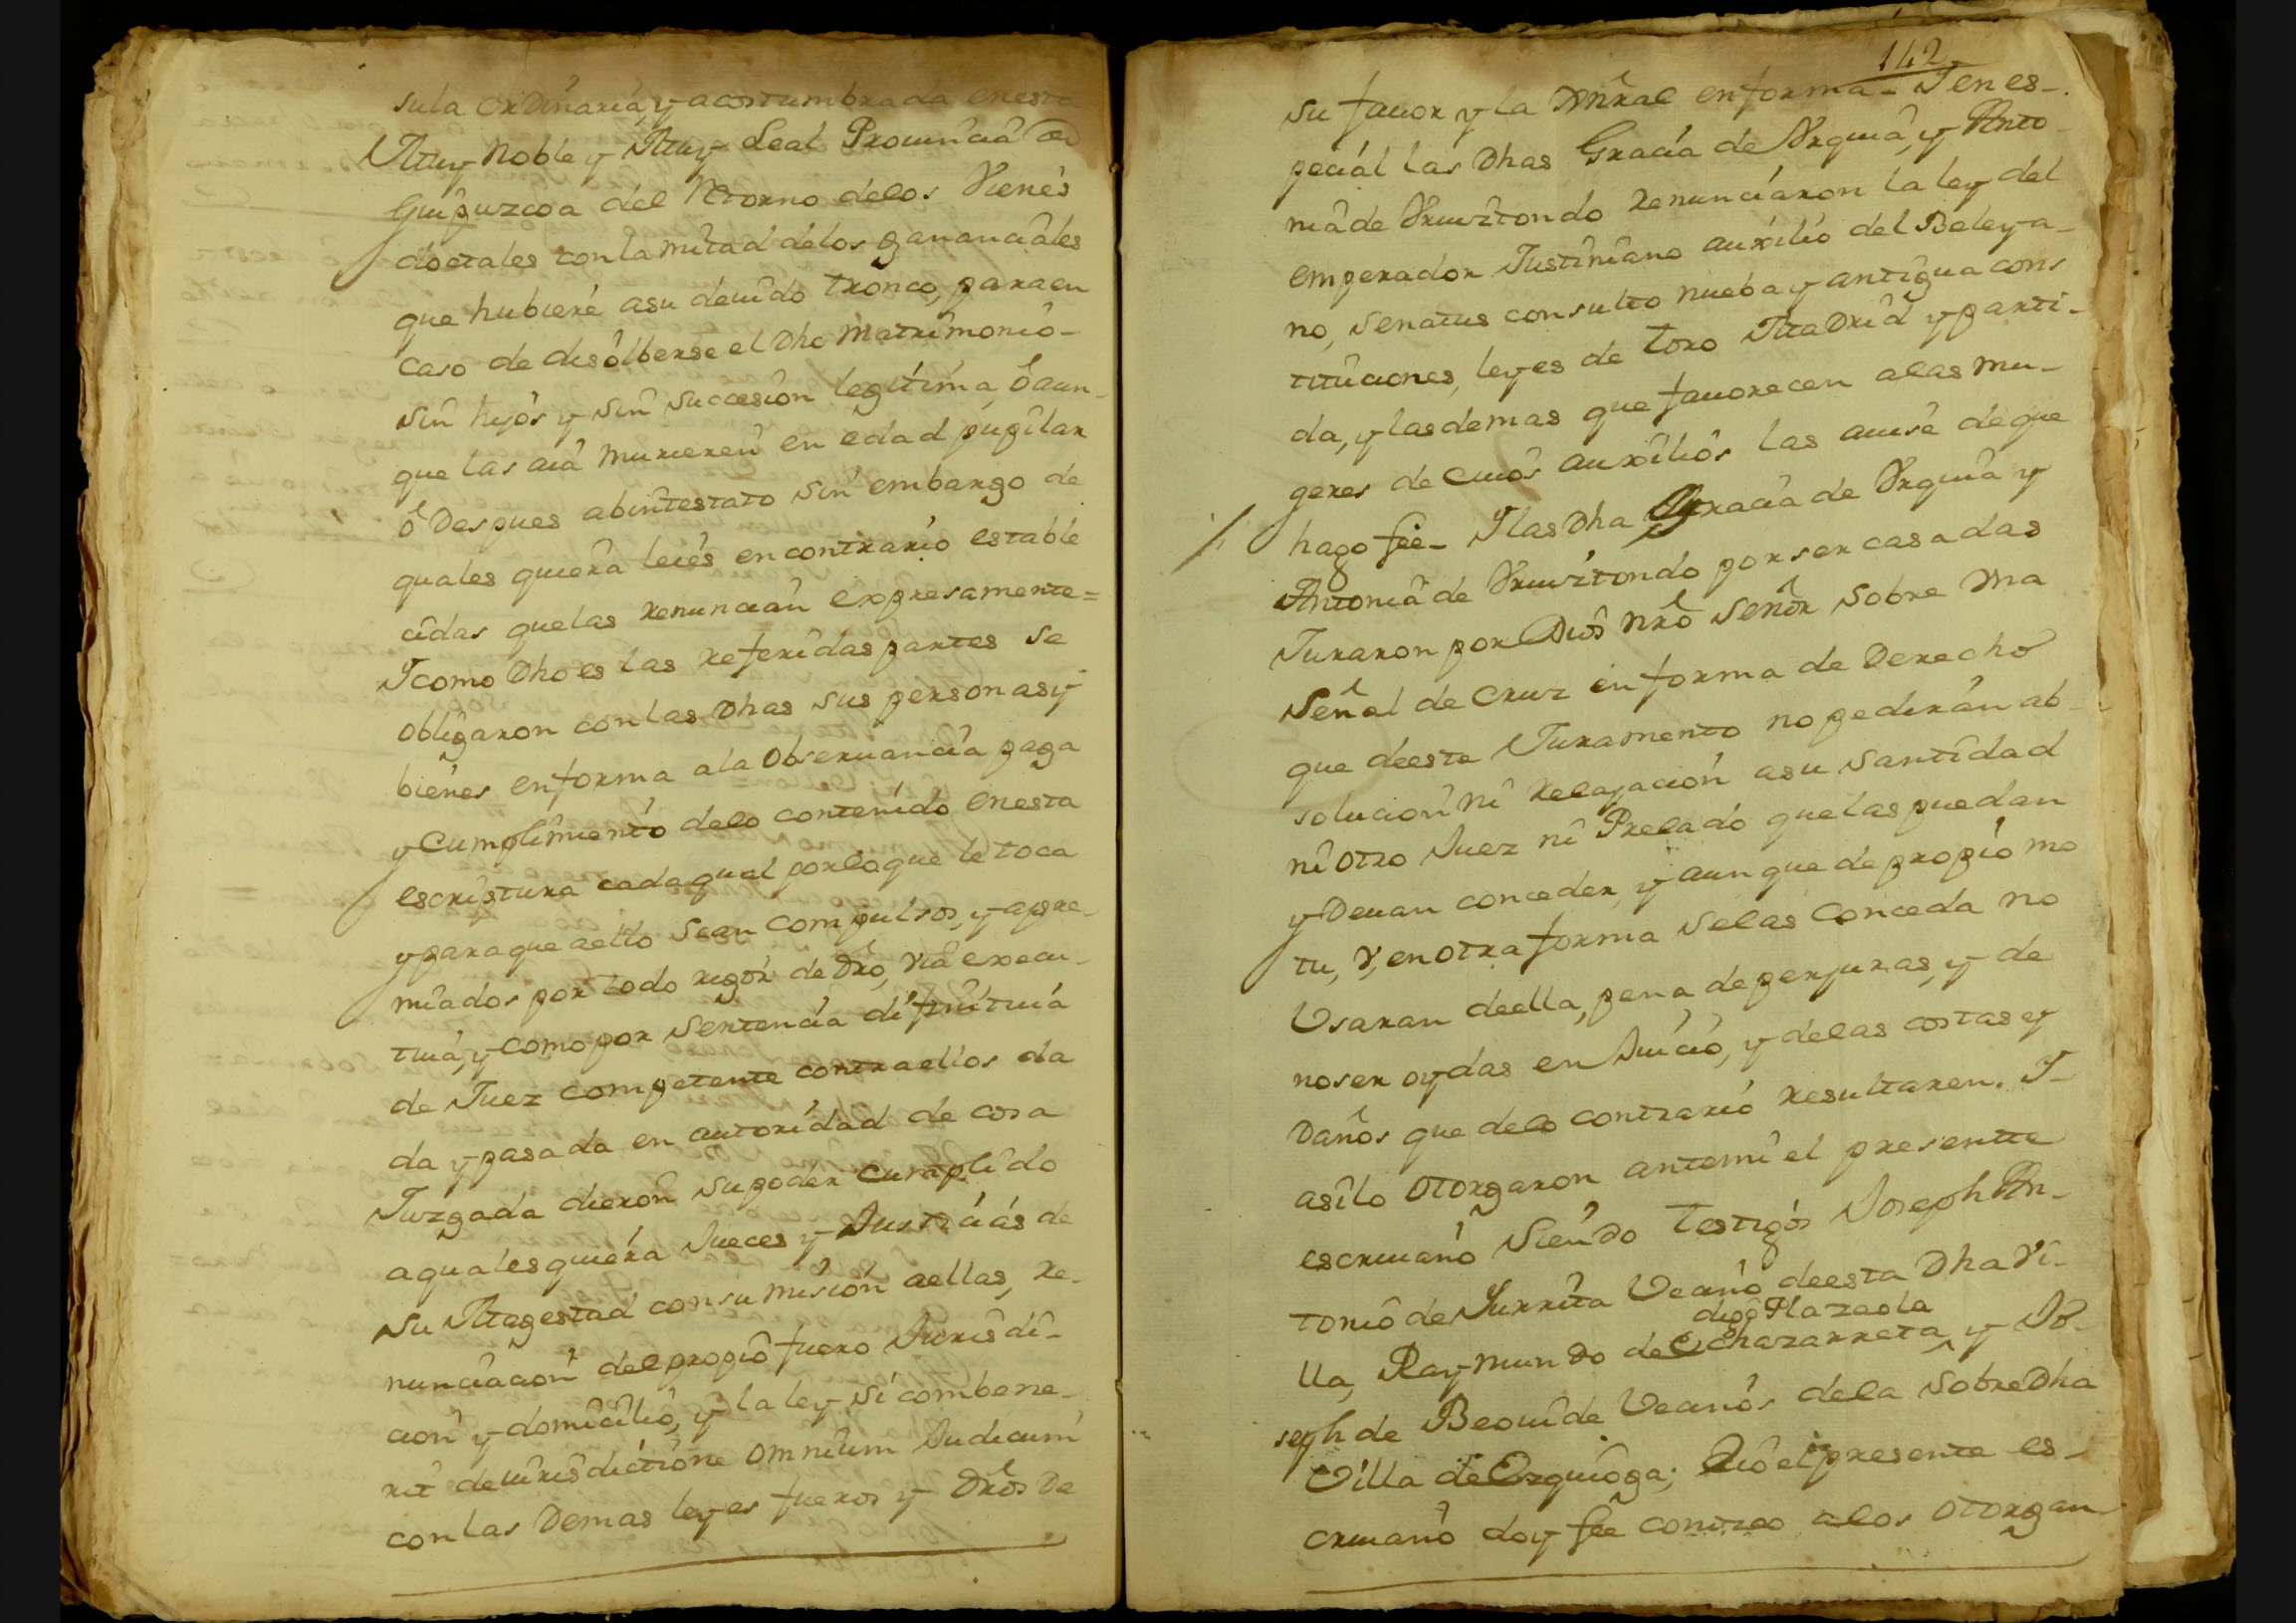 sula ordinaria, y acostumbrada en esta
Muy Noble y Muy Leal Prouincia de
Guipuzcoa del Retorno delos Vienes
doctales con la mitad delos gananciales
que hubiere asu deuido tronco, para en
caso de disolberse el Dho Matrimonio
sin hijos y sin succesion legitima, ô aun-
que las aia murieren en edad pupilar
ô Despues abintestato sin embargo de
quales quiera leies en contrario estable
cidas que las renuncian expresamente=
I como Dho es las referidas partes se
obligaron con las Dhas sus personas y
bienes en forma ala obseruancia paga
y Cumplimiento delo contenido en esta
escriptura cada qual por lo que le toca
y para que aello sean compulsos, y apre-
miados por todo rigor de Dro, via execu-
tiua, y como por sentencia difinitiua
de Juez competente contra ellos da
da y pasada en autoridad de cosa
Juzgada dieron su poder cumplido
a quales quiera Jueces y Justicias de
su Magestad con sumision aellas, re-
nunciacion del propio fuero Jurisdi-
cion y domicilio, y la ley si combene-
rit de iurisdictione omnium Judicum
con las Demas leyes fueros y Dros De
142
su fauor y la Gnral en forma - I en es-
pecial las Dhas Gracia de Vrquia, y Anto
nia de Vruuitondo renunciaron la ley del
emperador Justiniano auxilio del Beleya-
no, senatus consulto nueba y antigua cons
tituciones, leyes de toro Madrid y parti-
da, y las demas que fauorecen alas mu-
geres de cuios auxilios las auisé de que
hago fee - I las Dha Gracia de Vrquia y
Antonia de Vruuitondo por ser casadas
Juraron por Dios Nro Señor sobre Vna
Señal de Cruz en forma de Derecho
que deeste Juramento no pediran ab-
solucion ni relajacion asu Santidad
ni otro Juez ni Prelado que las puedan
y Deuan conceder, y aun que de propio mo
tu, V, en otra forma se las conceda no
Vsaran deella, pena de perjuras, y de
no ser oydas en Juicio, y delas costas y
Daños que delo contrario resultaren. I-
asi lo otorgaron antemi el presentte
escriuano Siendo testigos Joseph An-
tonio de Yurrita Vecino deesta Dha Vi-
digo Plazaola
lla, Raymundo de Echazarreta, y Jo-
seph de Beouide Vecinos dela sobre Dha
Villa de Ezquioga; Eio el presente es-
criuano doy fee conozco alos otorgan